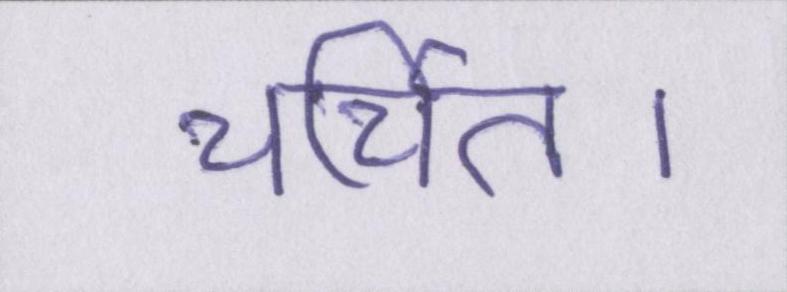 चर्चित।